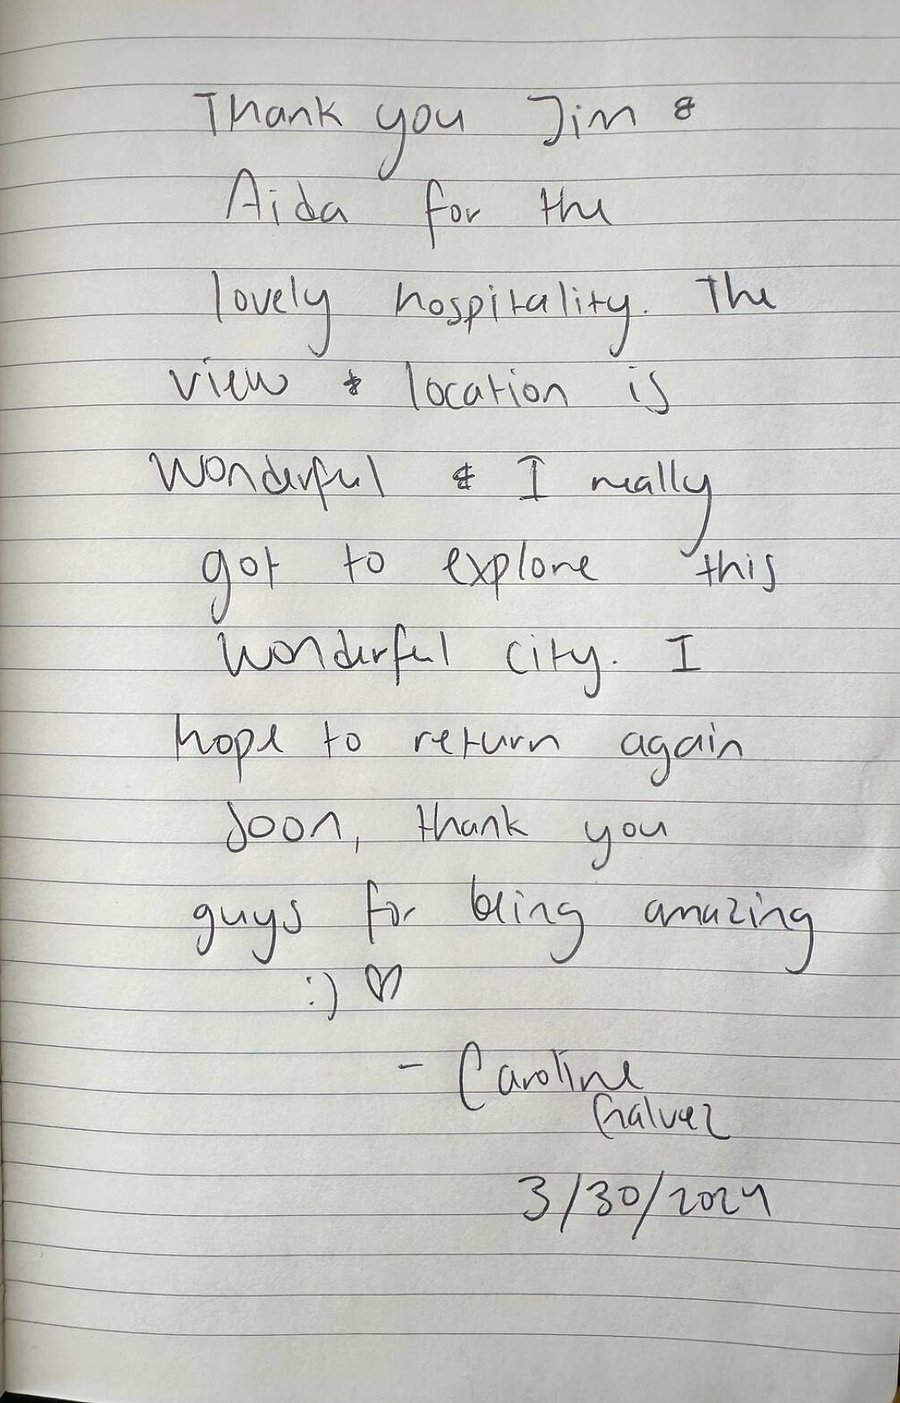 Thank you Jim &
Aida for the
lovely hospitality. The
view & location is
wonderful & I really
got to explore this
wonderful city. I
hope to return again
soon, thank you
guys for being amazing
:) ♡
- Caroline
Galvez
3/30/2024